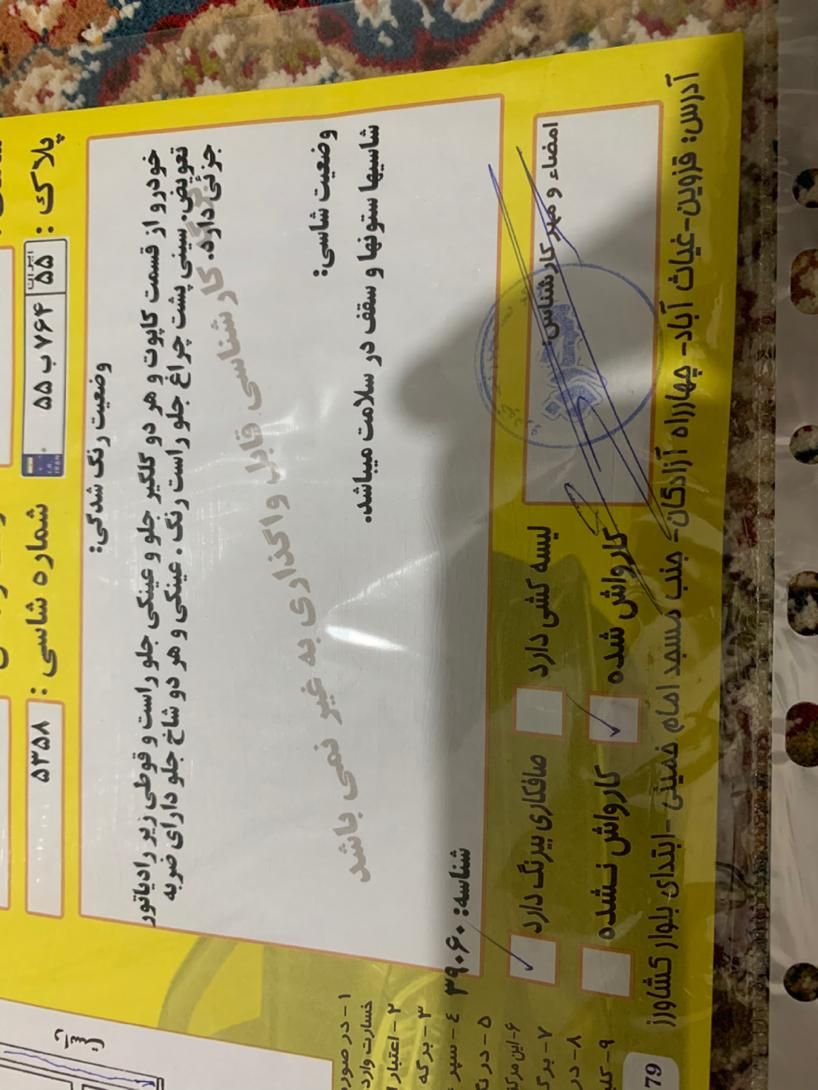 پلاک:
ایران ۵۵
۷۶۴ ب ۵۵
I.R. IRAN
شماره شاسی:
۵۳۵۸
وضعیت رنگ شدگی:
خودرو از قسمت کاپوت و هر دو گلگیر جلو و عینکی جلو راست و قوطی زیر رادیاتور
تعویض. سینی پشت چراغ جلو راست رنگ. عینکی و هر دو شاخ جلو دارای ضربه
جزئی دارد.
کارشناسی قابل واگذاری به غیر نمی باشد
وضعیت شاسی:
شاسیها ستونها و سقف در سلامت میباشد.
شناسه: ۳۹۰۶۰
امضاء و مهر کارشناس:
لیسه کشی دارد
صافکاری بیرنگ دارد
کارواش شده
کارواش نشده
آدرس: قزوین-غیاث آباد- چهارراه آزادگان- جنب مسجد امام خمینی -ابتدای بلوار کشاورز
۱- در صورت
خسارت وارد
۲- اعتبار
۳- برگه
۴- سیر
۵- در
۶- این مرکز
۷- برگ
۸- در
۹-
79